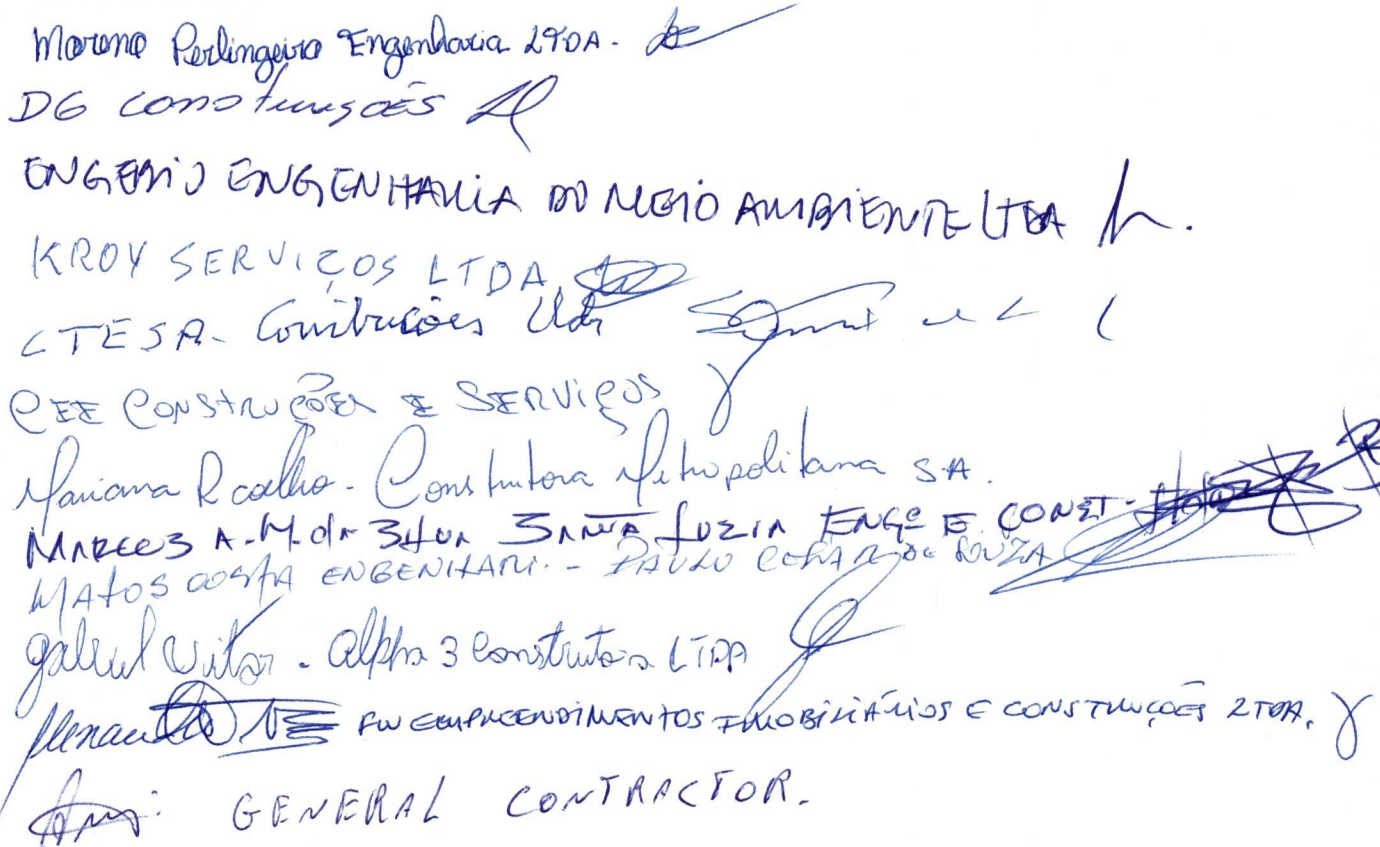 Moreno Perlingeiro Engenharia LTDA.
DG Construções
ENGEBIO ENGENHARIA DO MEIO AMBIENTE LTDA
KROY SERVIÇOS LTDA
CTESA - Construções Ltda
CEE CONSTRUÇÕES E SERVIÇOS
Mariana R Coelho - Construtora Metropolitana SA.
MARCOS A. M. da Silva SANTA LUZIA ENGª E CONST -
MATOS COSTA ENGENHARI. - PAULO CESAR DE SOUZA
Gabriel Vitor - Alpha 3 Construtora LTDA
FW EMPREENDIMENTOS IMOBILIÁRIOS E CONSTRUÇÕES LTDA.
GENERAL CONTRACTOR.